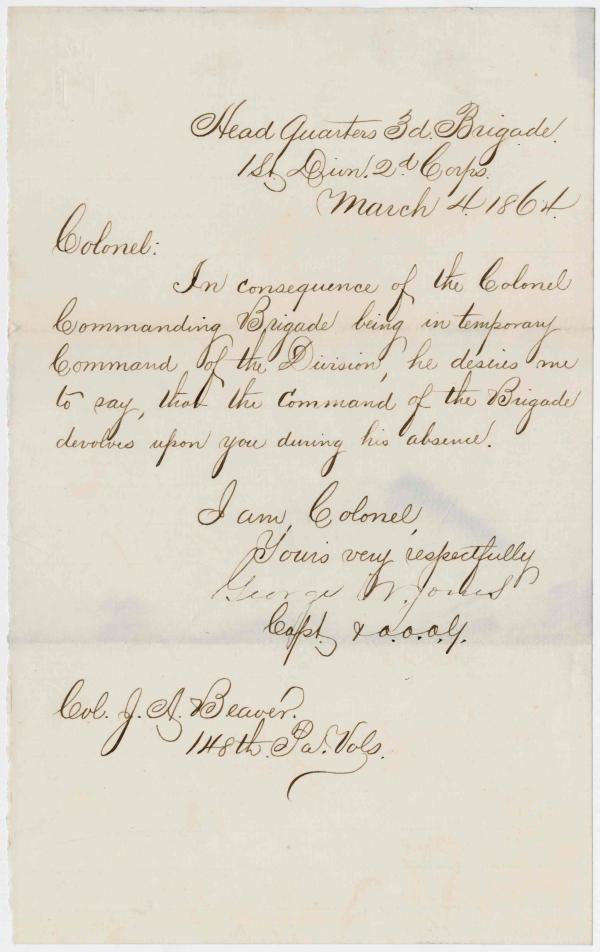 Head Quarters 3d. Brigade.
1st Divn. 2d Corps.
March 4. 1864.
Colonel:
In consequence of the Colonel
Commanding Brigade being in temporary
Command of the Division, he desires me
to say, that the Command of the Brigade
devolves upon you during his absence.
I am, Colonel,
Yours very respectfully
George W. Jones
Capt. & a.a.a.G.
Col. J. A. Beaver.
148th. Pa. Vols.